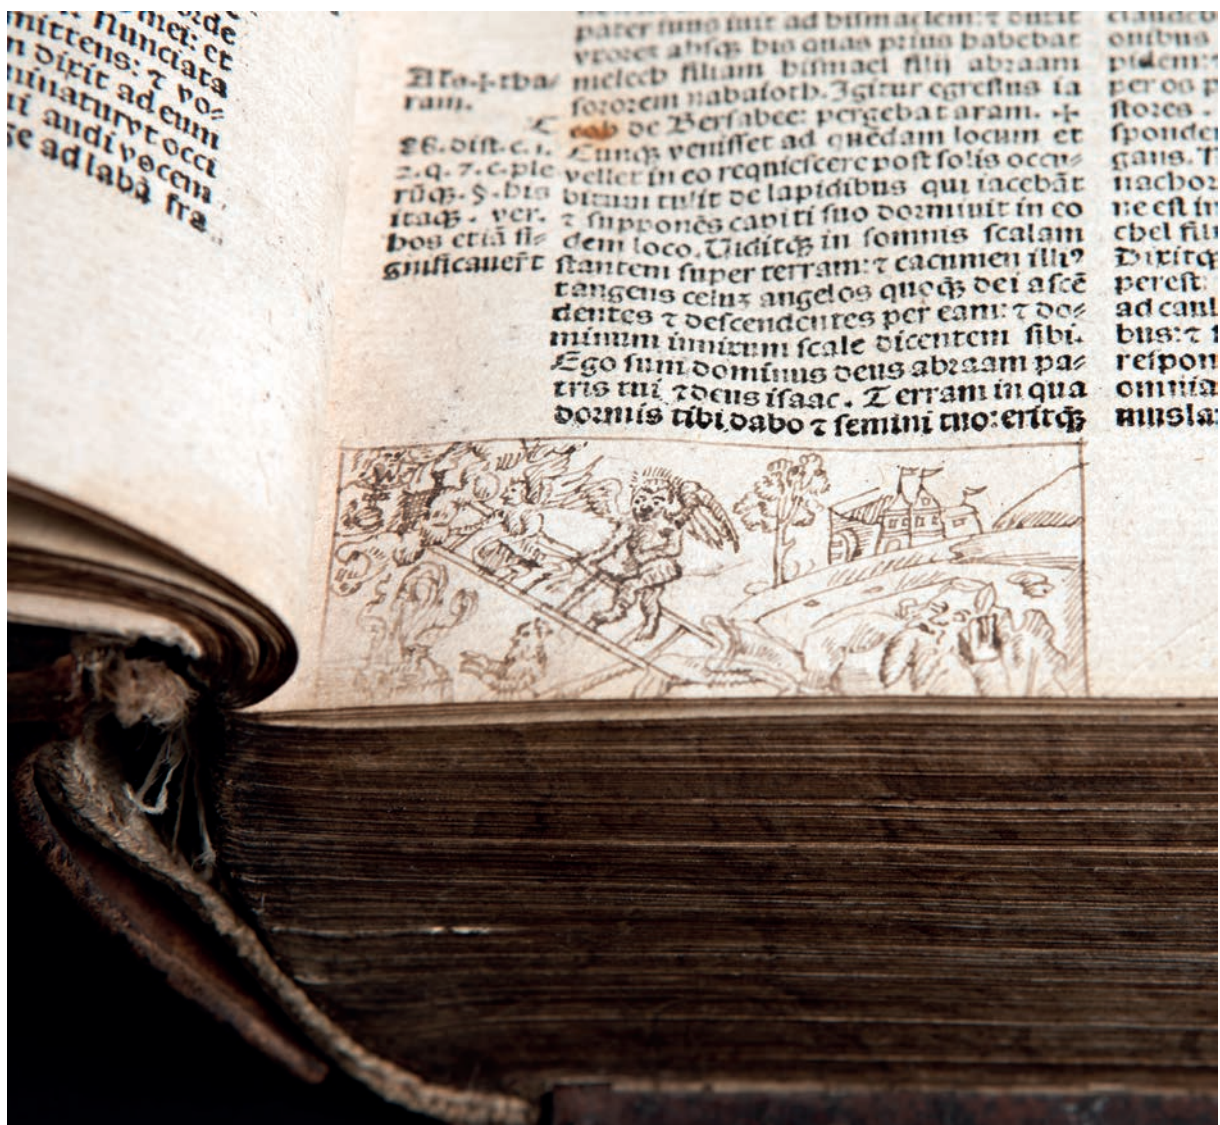 orde
mei: et
Nunciata
mittens: ⁊ vo⸗
n dixit ad eum
minaturvt occi
audi vocem
ge ad labã fra
pater suus iuit ad hismaelem: ⁊ duxit
vxores absqȝ his quas prius habebat
meleth filiam hismael filij abraam
sororem nabaioth. Igitur egressus ia
cob de Bersabee: pergebat aram. ⸭
Cunqȝ venisset ad quẽdam locum et
vellet in eo requiescere post solis occu⸗
bitum tulit de lapidibus qui iacebãt
⁊ supponẽs capiti suo dormiuit in eo
dem loco. Uiditqȝ in somnis scalam
stantem super terram: ⁊ cacumen illiꝰ
tangens celuȝ angelos quoqȝ dei ascẽ
dentes ⁊ descendentes per eam: ⁊ do⸗
minum innixum scale dicentem sibi.
Ego sum dominus deus abraam pa⸗
tris tui ⁊ deus isaac. Terram in qua
dormis tibi dabo ⁊ semini tuo: eritqȝ
ram.
26. dist. c. 1.
2. q. 7. c. ple
rũqȝ. §. his
itaqȝ. ver.
hos etiã si⸗
gnificauer̃t
onibus
pidem: ⁊
per os p
stores.
sponder
gans.
nachor
ne est in
chel fili
Dixitqȝ
perest:
ad caul
bus: ⁊
respon
omnia
mus la